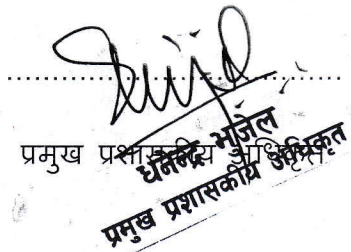 ..........................................
प्रमुख प्रशासकीय अधिकृत
धनेन्द्र भुजेल
प्रमुख प्रशासकीय अधिकृत